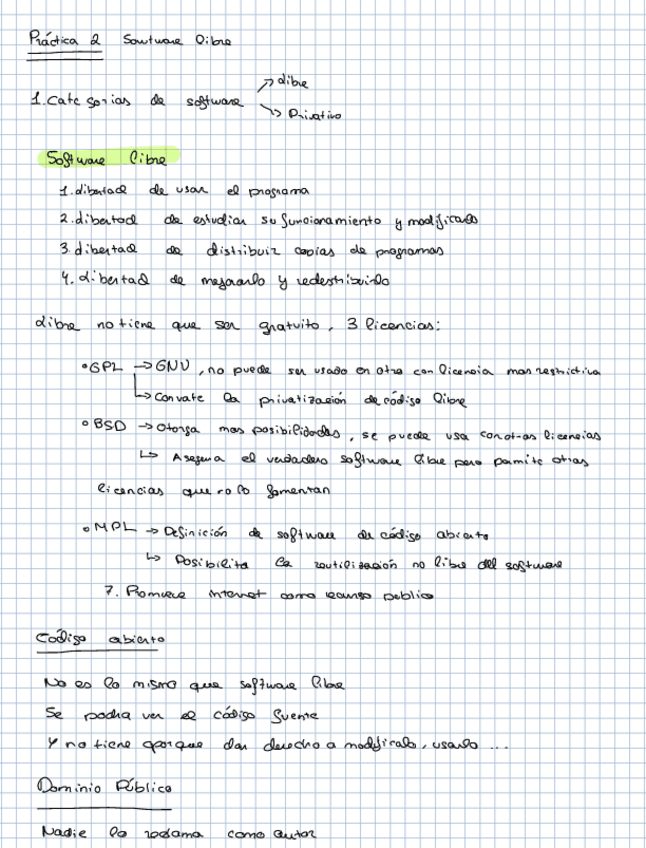 Práctica 2 Sowtware libre
1. Categorias de software → libre
→ Privativo
Software libre
1. libertad de usar el programa
2. libertad de estudiar su funcionamiento y modificarlo
3. libertad de distribuir copias de programas
4. libertad de mejorarlo y redestribuirlo
libre no tiene que ser gratuito, 3 licencias:
• GPL → GNU, no puede ser usado en otra con licencia mas restrictiva
↳ Convate la privatización de código libre
• BSD → Otorga mas posibilidades, se puede usa con otras licencias
↳ Asegura el verdadero software libre pero permite otras
licencias que no lo fomentan
• MPL → Definición de software de código abierto
↳ Posibilita la reutilización no libre del software
7. Promueve internet como recurso publico
Código abierto
No es lo mismo que software libre
Se podra ver el código fuente
Y no tiene qporque dar derecho a modificalo, usarlo ...
Dominio Público
Nadie lo reclama como autor